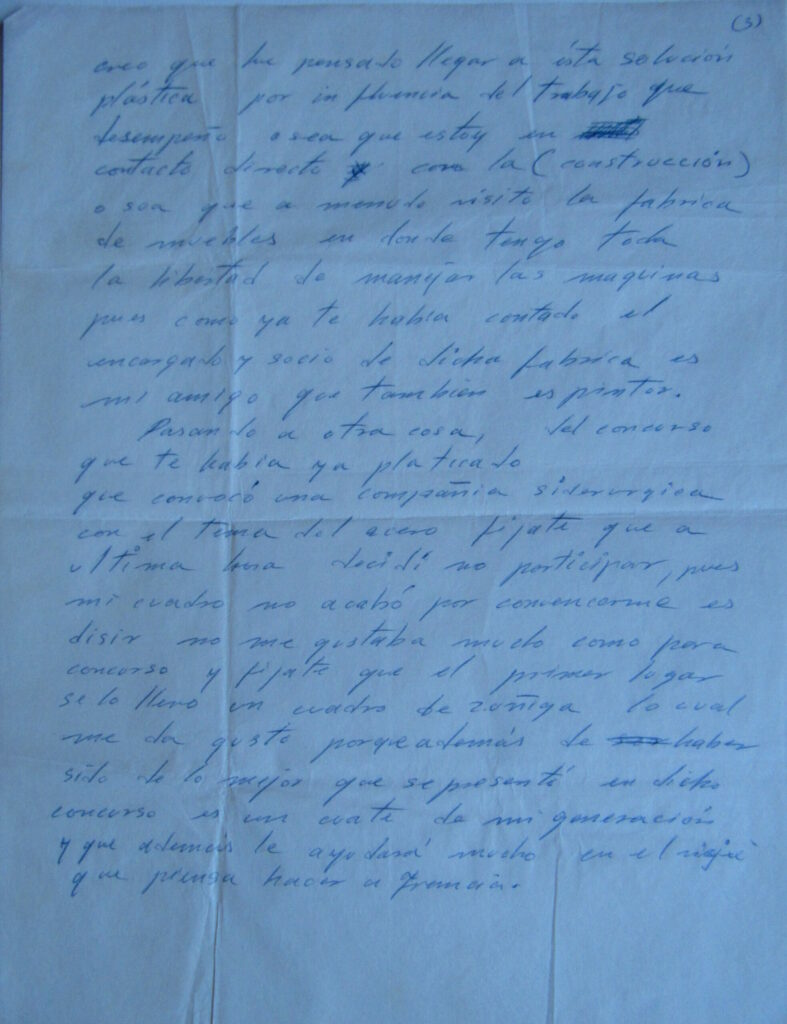 (3)
creo que he pensado llegar a ésta solución
plástica por influencia del trabajo que
desempeño osea que estoy en
contacto directo y con la (construcción)
o sea que a menudo visito la fabrica
de muebles en donde tengo toda
la libertad de manejar las maquinas
pues como ya te habia contado el
encargado y socio de dicha fabrica es
mi amigo que tambien es pintor.
Pasando a otra cosa, del concurso
que te habia ya platicado
que convocó una compañia siderurgica
con el tema del acero fijate que a
ultima hora decidi no participar, pues
mi cuadro no acabó por convencerme es
disir no me gustaba mucho como para
concurso y fijate que el primer lugar
se lo llevo un cuadro de zuñiga lo cual
me da gusto porque además de ser haber
sido de lo mejor que se presentó en dicho
concurso es un cuate de mi generación
y que además le ayudará mucho en el viaje
que piensa hacer a Francia.